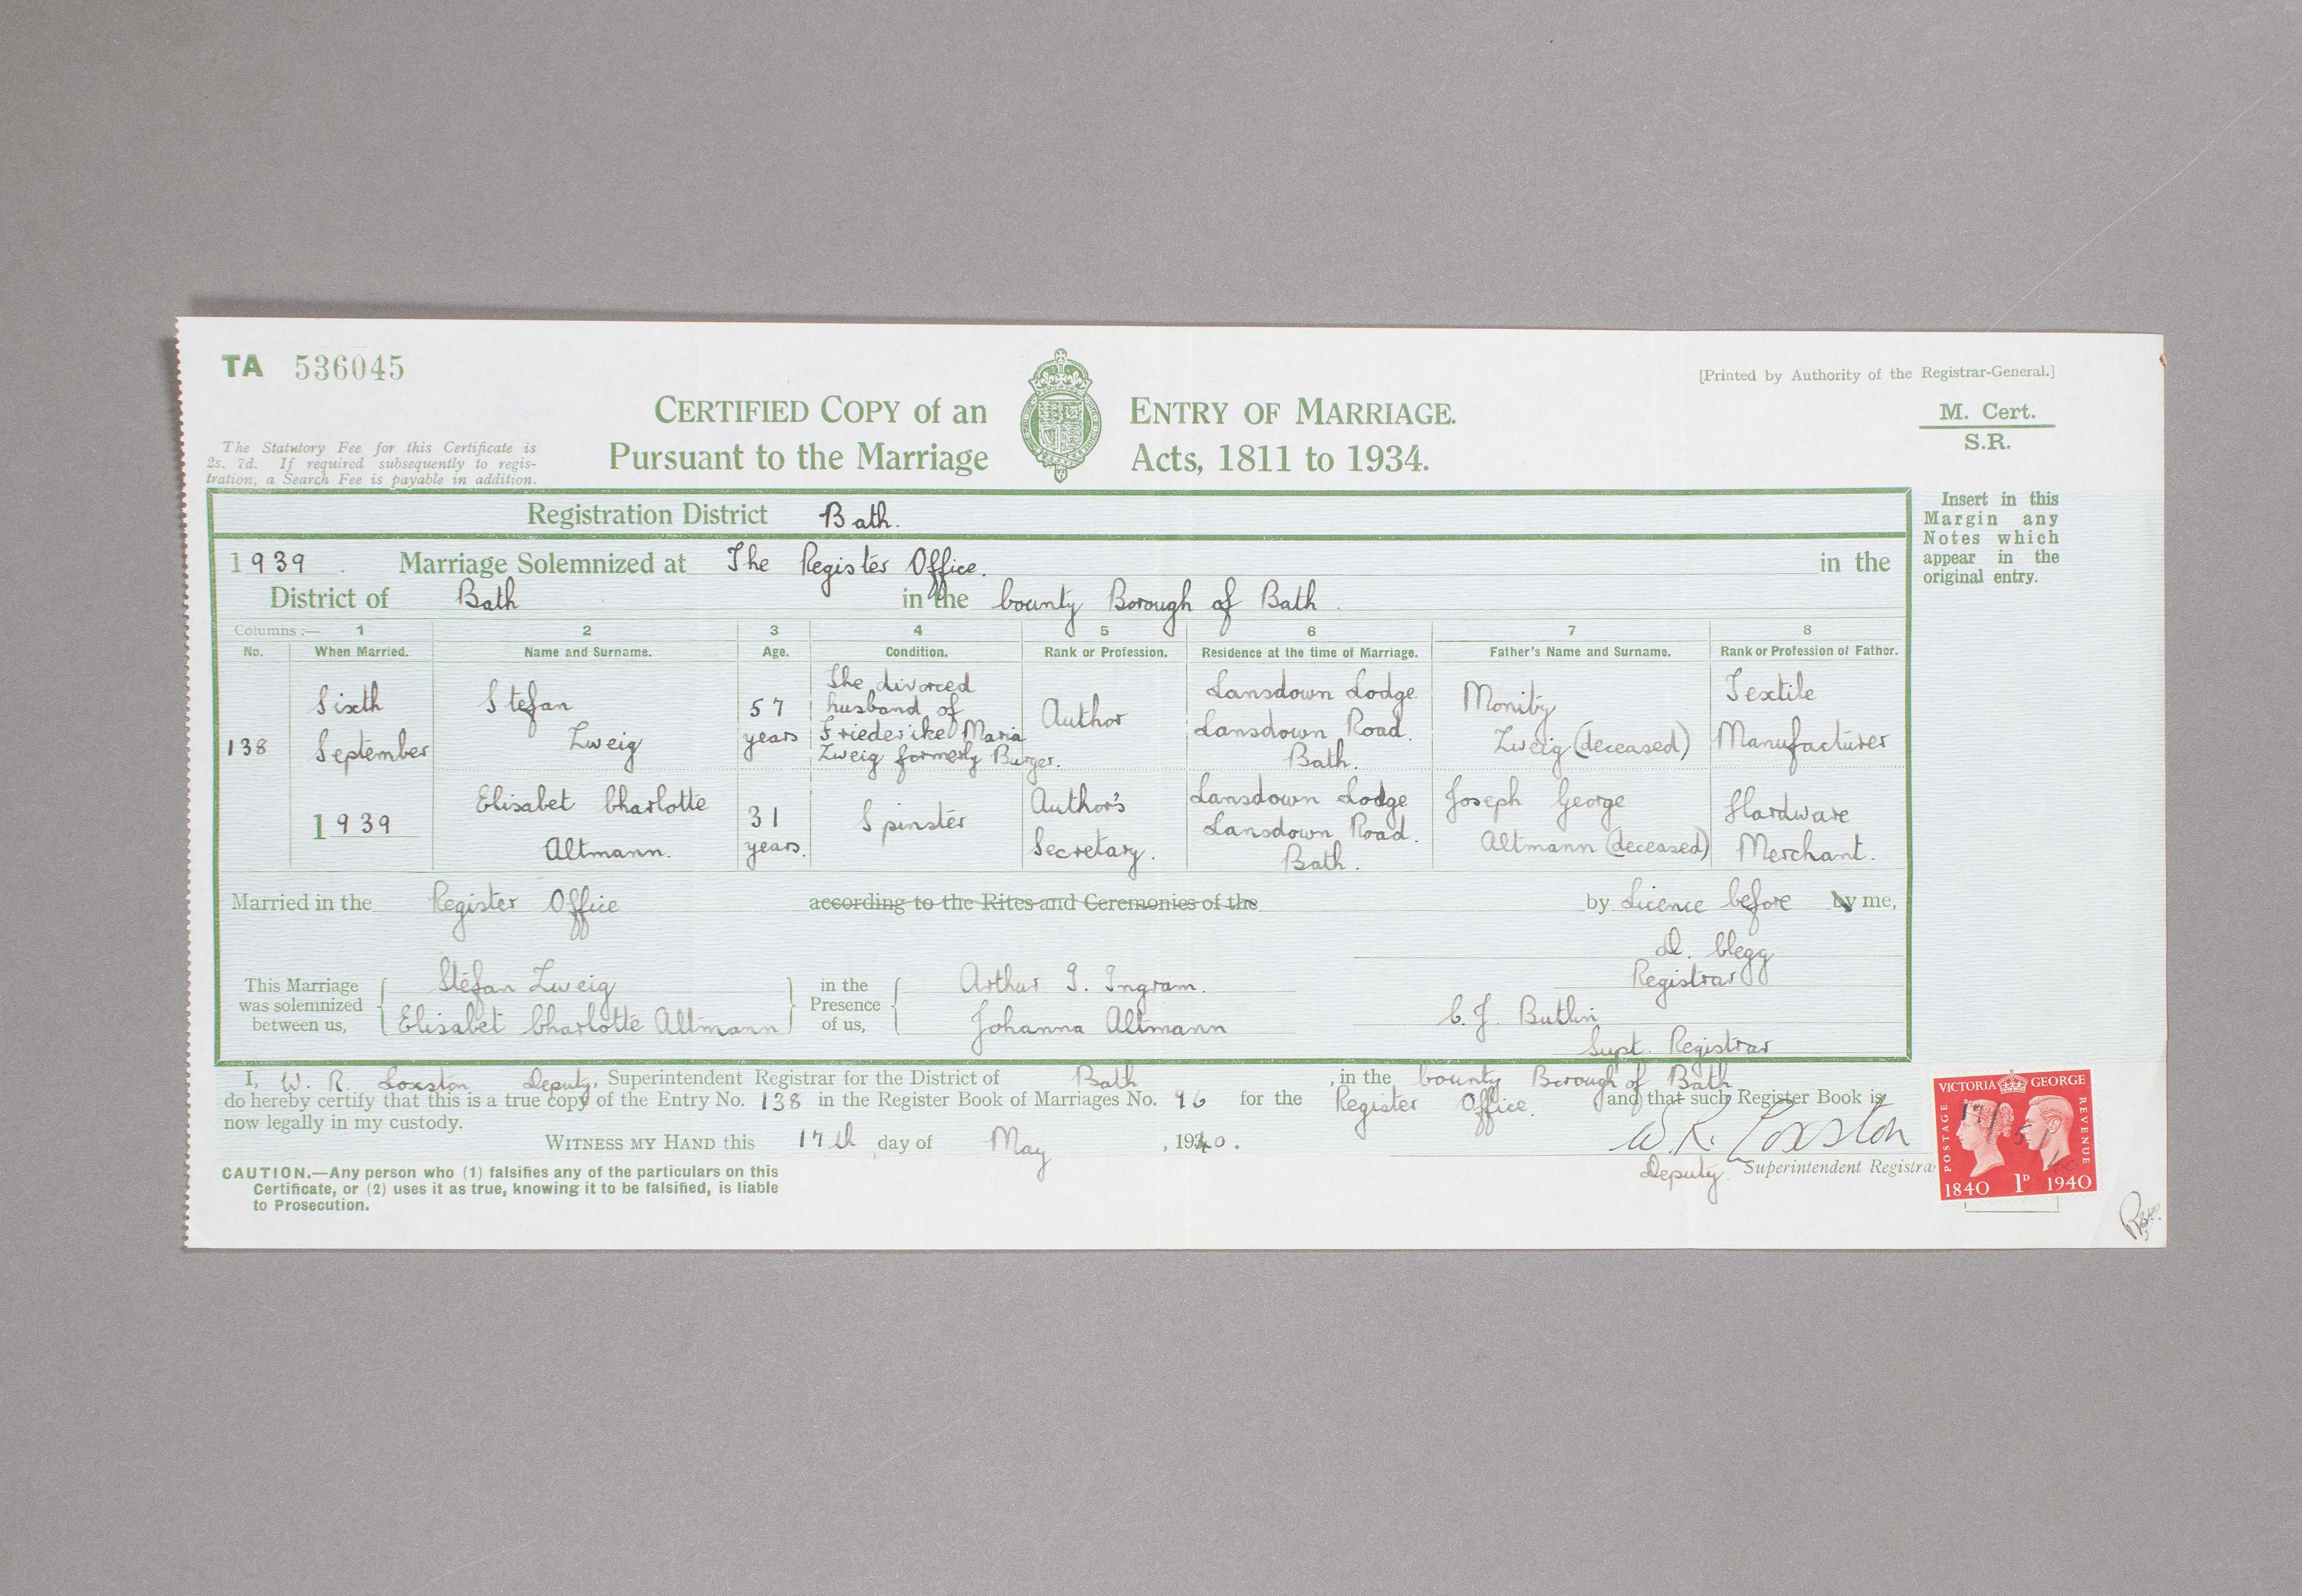 TA 536045
[Printed by Authority of the Registrar-General.]
CERTIFIED COPY of an ENTRY OF MARRIAGE.
Pursuant to the Marriage Acts, 1811 to 1934.
M. Cert.
S.R.
The Statutory Fee for this Certificate is
2s. 7d. If required subsequently to regis-
tration, a Search Fee is payable in addition.
Insert in this
Margin any
Notes which
appear in the
original entry.
Registration District Bath.
1939. Marriage Solemnized at The Register Office. in the
District of Bath in the County Borough of Bath.
Columns :— 1 2 3 4 5 6 7 8
No. When Married. Name and Surname. Age. Condition. Rank or Profession. Residence at the time of Marriage. Father's Name and Surname. Rank or Profession of Father.
138
Sixth
September
1939
Stefan
Zweig
57
years
The divorced
husband of
Friederike Maria
Zweig formerly Burger.
Author
Lansdown Lodge
Lansdown Road.
Bath.
Moritz
Zweig (deceased)
Textile
Manufacturer
Elisabet Charlotte
Altmann.
31
years.
Spinster
Author's
Secretary.
Lansdown Lodge
Lansdown Road.
Bath.
Joseph George
Altmann (deceased)
Hardware
Merchant.
Married in the Register Office according to the Rites and Ceremonies of the by Licence before by me,
This Marriage
was solemnized
between us,
Stefan Zweig
Elisabet Charlotte Altmann
in the
Presence
of us,
Arthur I. Ingram.
Johanna Altmann
D. Clegg
Registrar
C. J. Butlin
Supt. Registrar
I, W. R. Loxston Deputy, Superintendent Registrar for the District of Bath, in the County Borough of Bath
do hereby certify that this is a true copy of the Entry No. 138 in the Register Book of Marriages No. 96 for the Register Office. and that such Register Book is
now legally in my custody.
WITNESS MY HAND this 17th day of May, 1940.
W. R. Loxston
Deputy Superintendent Registrar
CAUTION.—Any person who (1) falsifies any of the particulars on this
Certificate, or (2) uses it as true, knowing it to be falsified, is liable
to Prosecution.
VICTORIA GEORGE
POSTAGE REVENUE
17/5/40
1840 1D 1940